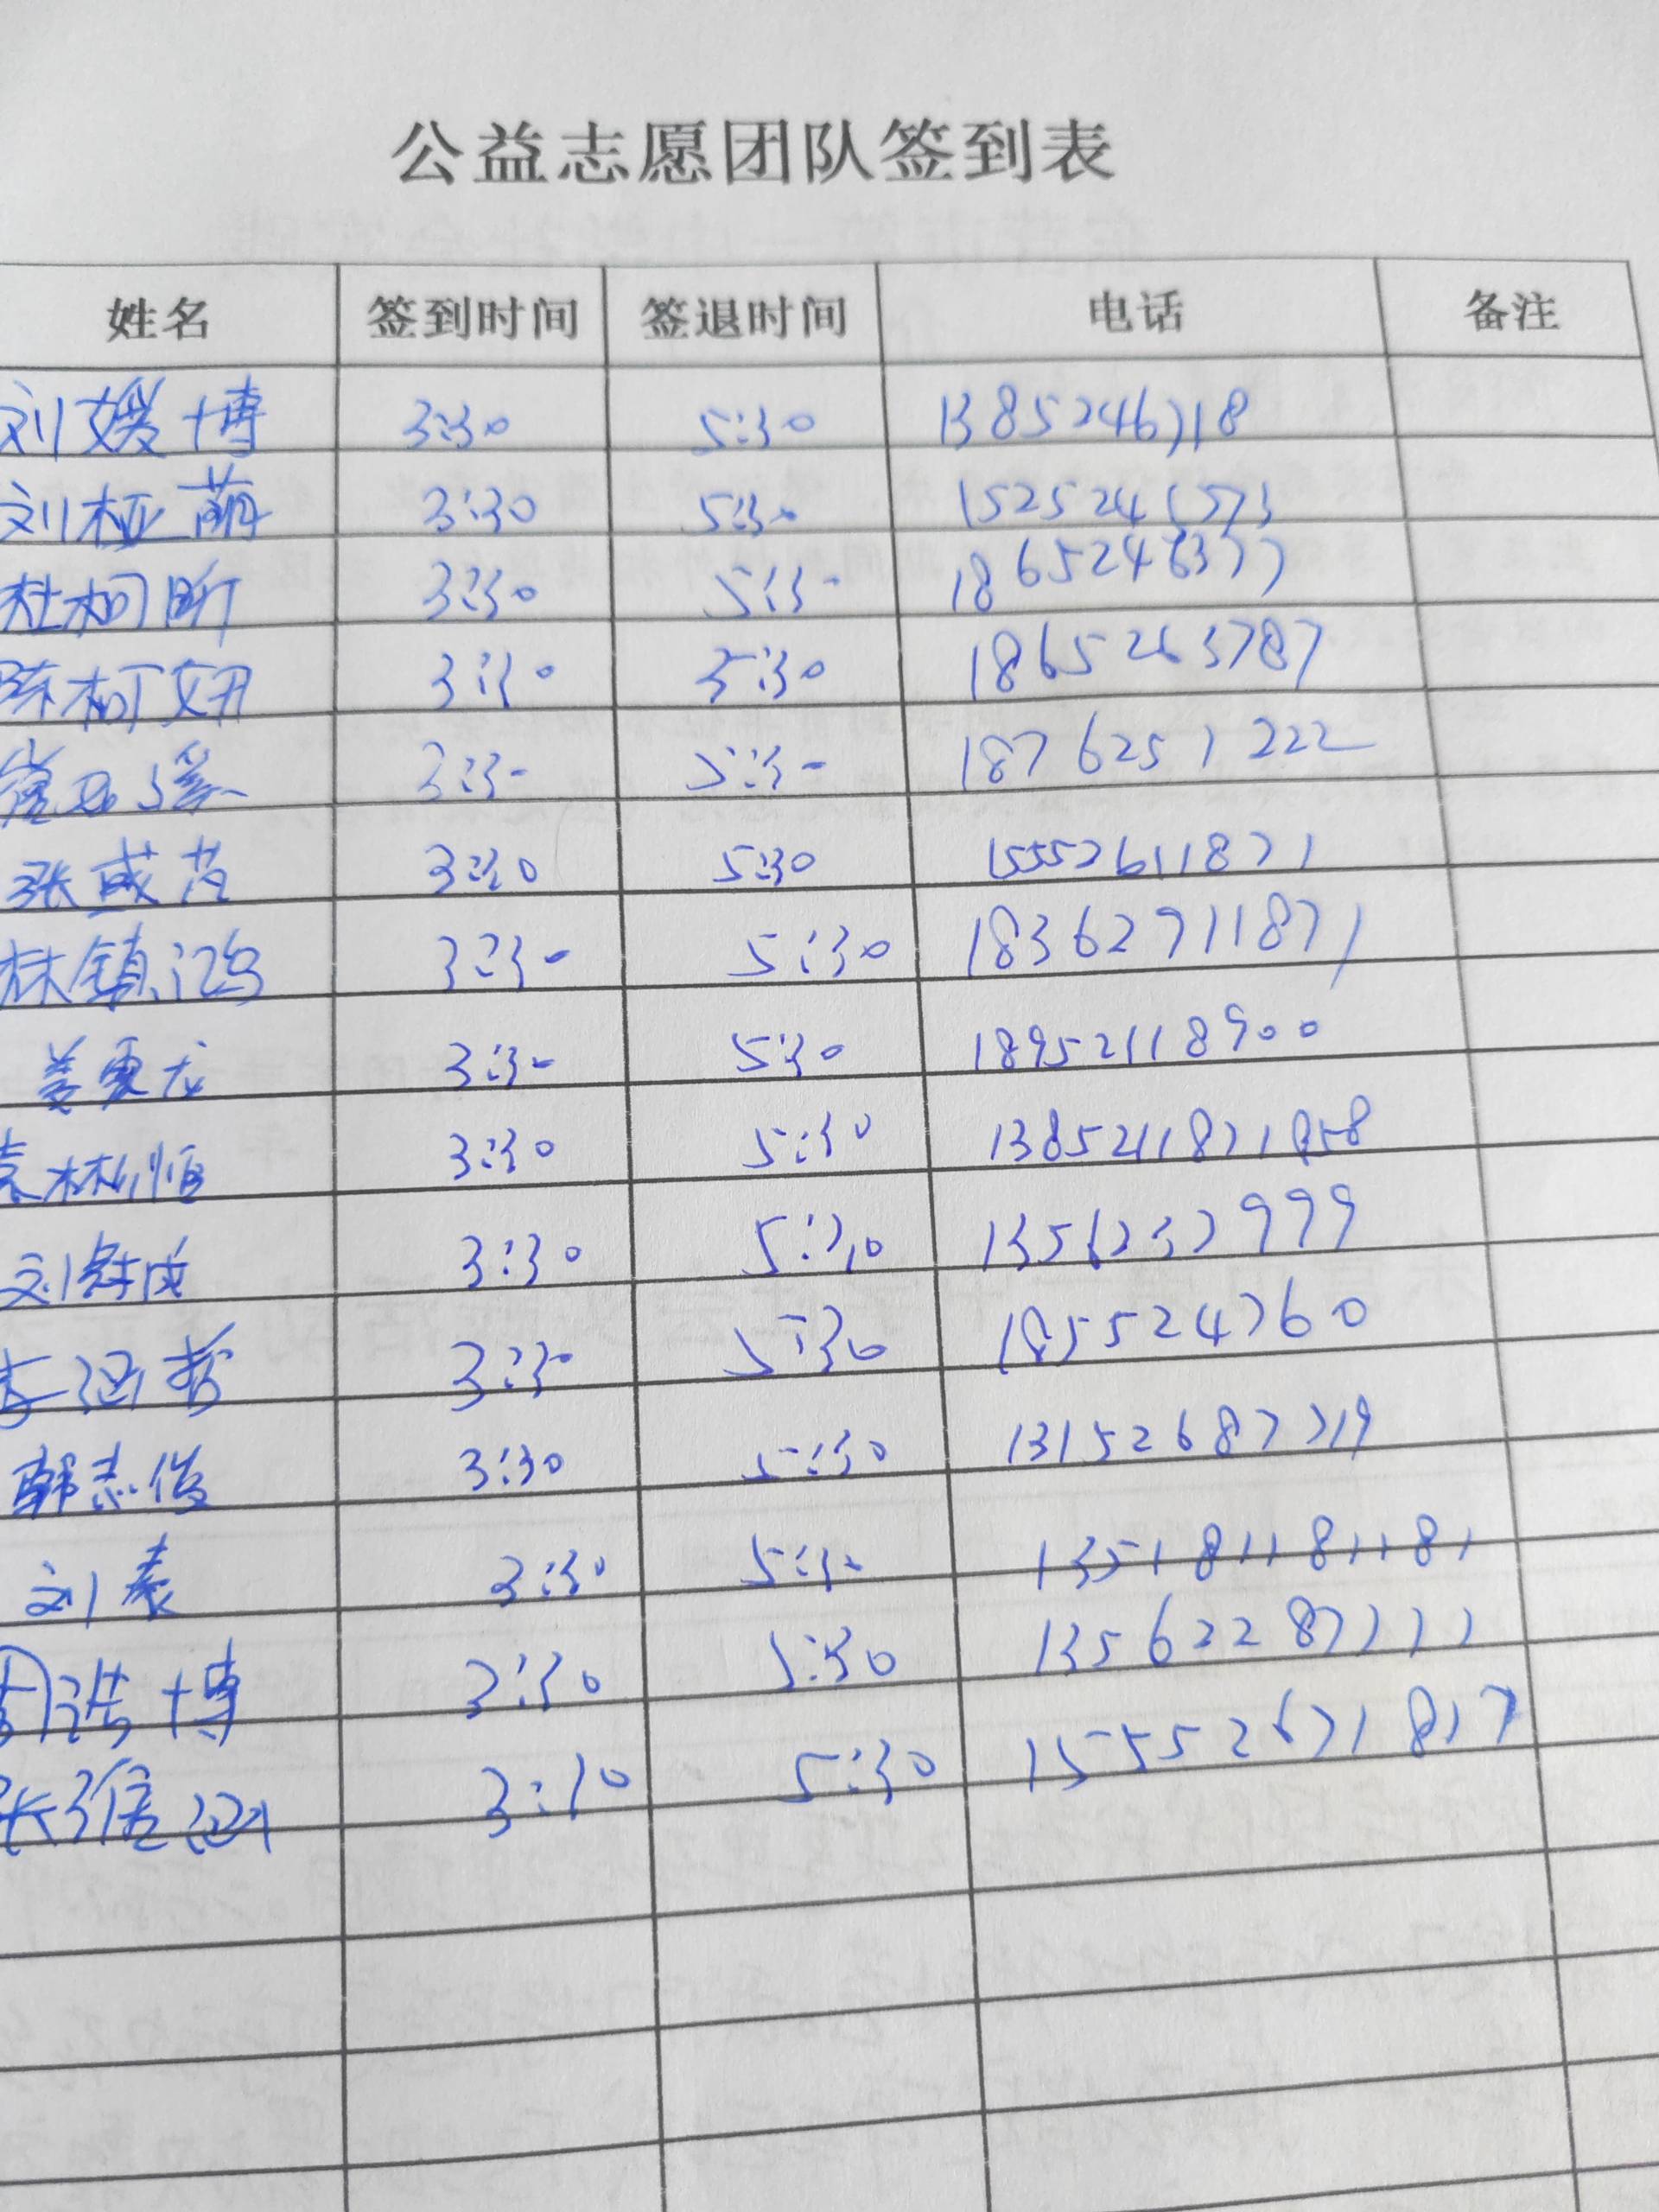 公益志愿团队签到表
姓名 签到时间 签退时间 电话 备注
刘媛博 3:30 5:30 1385246718
刘桠萌 3:30 5:30
杜柯昕 3:30 5:30 1865246377
陈柯妍 3:30 5:30 1865263787
3:30 5:30 1876251222
张 3:30 5:30 15552611871
林镇鸿 3:30 5:30 18362711871
姜 龙 3:30 5:30 18952118900
林恒 3:30 5:30
刘 成 3:30 5:30
李涵哲 3:30 5:30 185524760
韩志俊 3:30 5:30 13152687719
刘 3:30 5:30 135181181181
周浩博 3:30 5:30 13562287777
张 3:10 5:30 155552671817